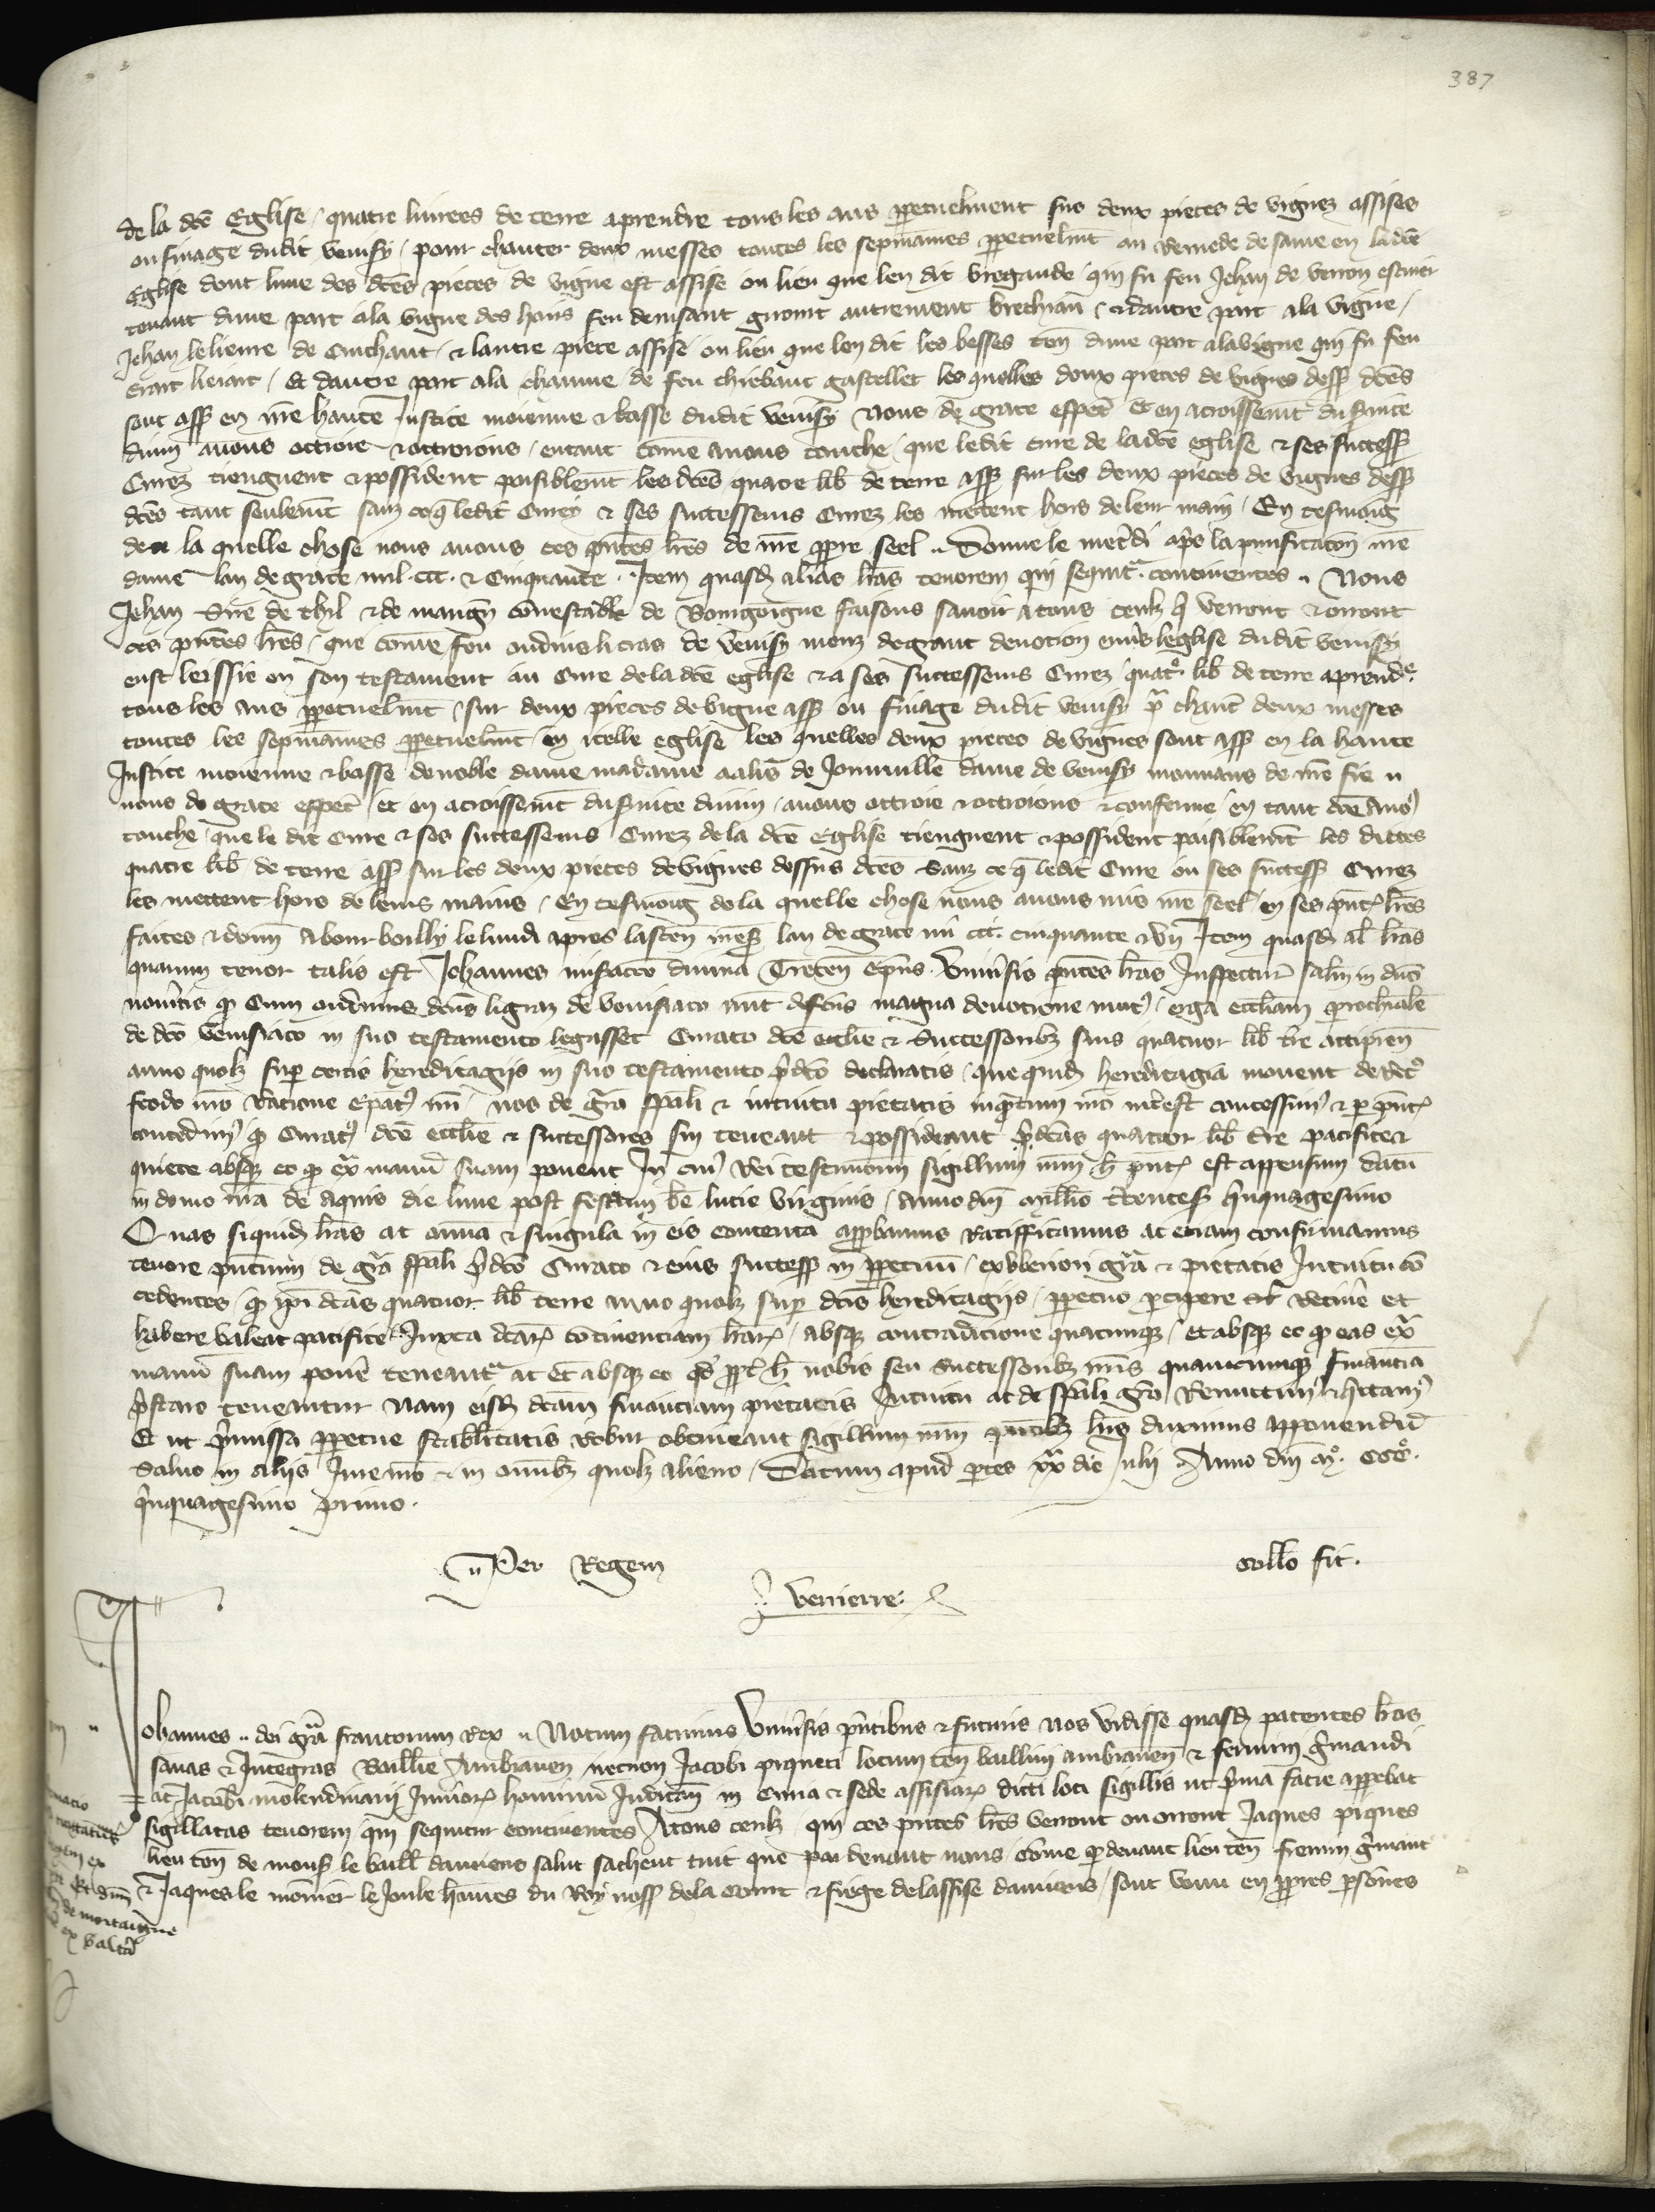 387
de la dce Eglise / quatre livrees de terre aprendre tous les ans ppetuelment sus deux pieces de vignez assises
ou finage dudit venisy / pour chanter deux messes toutes les sepmaines ppetuelmt ou remede de same en ladce
Eglise dont lune des dces pieces de vigne est assise ou lieu que len dit bregande / qui fu feu Jehan de venon escuier
tenant dune part ala vigne des hoirs feu denisant autrement / et dautre part ala vigne /
Jehan lelieure de Cuichant / et lautre piece assise ou lieu que len dit les besses ten dune part alavigne qui fu feu
Erart lieiart / Et dautre part ala chaume de feu thiebaut gastellet les quelles deux pieces de vignes dessus dces
sont assises en nre haute Justice moienne et basse dudit venisy Nous de grace especial Et en acroissement du service
divin avons ottroie et ottroions / entant come anous touche / que ledit cure de ladce eglise et ses success
Curez tiengnent et possident paisiblemt les dces quatre lib de terre assises sur les deux pieces de vignes dess
dces tant seulemt sanz ce q ledit Cure et ses successeurs Curez les mettent hors de leur main / En tesmoing
de la quelle chose nous avons ces pntes lres de nre ppre seel .. Donne le mecredi aps la purificacon nre
dame lan de grace mil .ccc. et Cinquante . Item quasd alias lras tenorem qui sequitur continentes .. Nous
Jehan Sire de thil et de marign conestable de Bourgoigne faisons savoir atous ceulz q verront et orront
ces pntes lres / que come feu oudins li cras de venisy meuz degrant devotion envers leglise dudit venisy
eust lerssie en son testament au Cure dela dce eglise et a ses successeurs Curez quatre lib de terre aprendre
tous les ans ppetuelmt / sur deux pieces devigne assises ou finage dudit venisy pr chanter deux messes
toutes les sepmaines ppetuelmt en icelle eglise les quelles deux pieces de vignes sont assises en la haute
Justice moienne et basse denoble dame madame aalis de Joinville dame de venisy mouvans de nre fie ..
nous de grace especial / et en acroissemt du service divin / avons ottroie et ottroions et conferme / en tant come anous
touche / que le dit Cure et ses successeurs Curez dela dce Eglise tiengnent et possident paisiblemt les dittes
quatre lib de terre assises sur les deux pieces devignes dessus dces sanz ce q ledit Cure ou ses success Curez
les mettent hors de leurs mains / En tesmoing dela quelle chose nous avons mis nre seel en ses pntes lres
faites et donn Abour boilly le lundi apres lascen mil ccc. cinquante et un Item quasd al lras
quarum tenor talis est Johannes miseracione divina Trecen Epus . Universis pntes lras Inspecturis salm in dno
noveritis q Cum oudinus dcus ligraz de venisiaco nunc defunctus magna devotione motus / erga ecclesiam prochialem
de dco venisiaco in suo testamento legasset Curato dce ecclie et Successoribus suis quatuor lib tre accipiend
anno quolz super certis hereditagiis in suo testamento pdco declaratis / que quid hereditagia movent deretro
feodo nro ratione epatus nri / nos de gra spali et intuitu pietatis inquantum nro interest concessimus et p pntes
concedimus q Curatus dce ecclie et successores sui teneant et possideant pdcas quatuor lib tre pacifice et
quiete absque eo q extra manum suam ponent In cuius rei testimonium sigillum nrm hiis pntibus est appensum datum
in domo nra de Aquis die lune post festum be lucie virginis / anno dni Millio trecentes quinquagesimo
Quas siquid lras ac omnia et singula in eis contenta approbamus Ratifficamus ac etiam confirmamus
tenore pntium de gra spali pdco Curato et eius success in ppetuum / exuberiori gra et pietatis Intuitu con
cedentes / q ipi dcas quatuor lib terre anno quolz super dcis hereditagiis / ppetuo percipere et retinere et
habere valeat pacifice / Juxta dcarum continentiam lrarum / absque contradictione quacumque / et absque eo q eas extra
manum suam ponere teneantur ac et absque eo qd nobis seu Successoribus nris quamcumque financiam
prestare teneantur Nam eisd dcam financiam pietatis Intuitu ac de spali gra Remittimus et quittamus
Et ut premissa ppetue stabilitatis robur obtineant sigillum nrm pntibus lris duximus apponendum
Salvo in aliis Jure nro et in omnibus quolz alieno / Datum apud ptes xxa die Julii Anno dni Mo. CCCo.
quinquagesimo primo .
.. Per Regem
Collo fit .
Verrierre
Johannes .. dei gra francorum Rex .. Notum facimus Universis pntibus et futuris nos vidisse quasd patentes lras
sanas et Integras Baillie Ambianen necnon Jacobi piqueti locum ten baillivi ambianen et fermini Germandi
ac Jacobi molendinarii Junioris hominum Judicantium in Curia et sede assisiarum dicti loci sigillis ut prima facie apparebat
sigillatas tenorem qui sequitur continentes Atous ceulz qui ces pntes lres verront ou orront Jaques piques
lieu ten de mons le baill damiens salut sachent tuit que par devant nous come pdevant lieu ten fremin Germant
et Jaques le monnier le Jonle homes du Roy noss dela Court et siege delassise damiens / sont venu en ppres psones